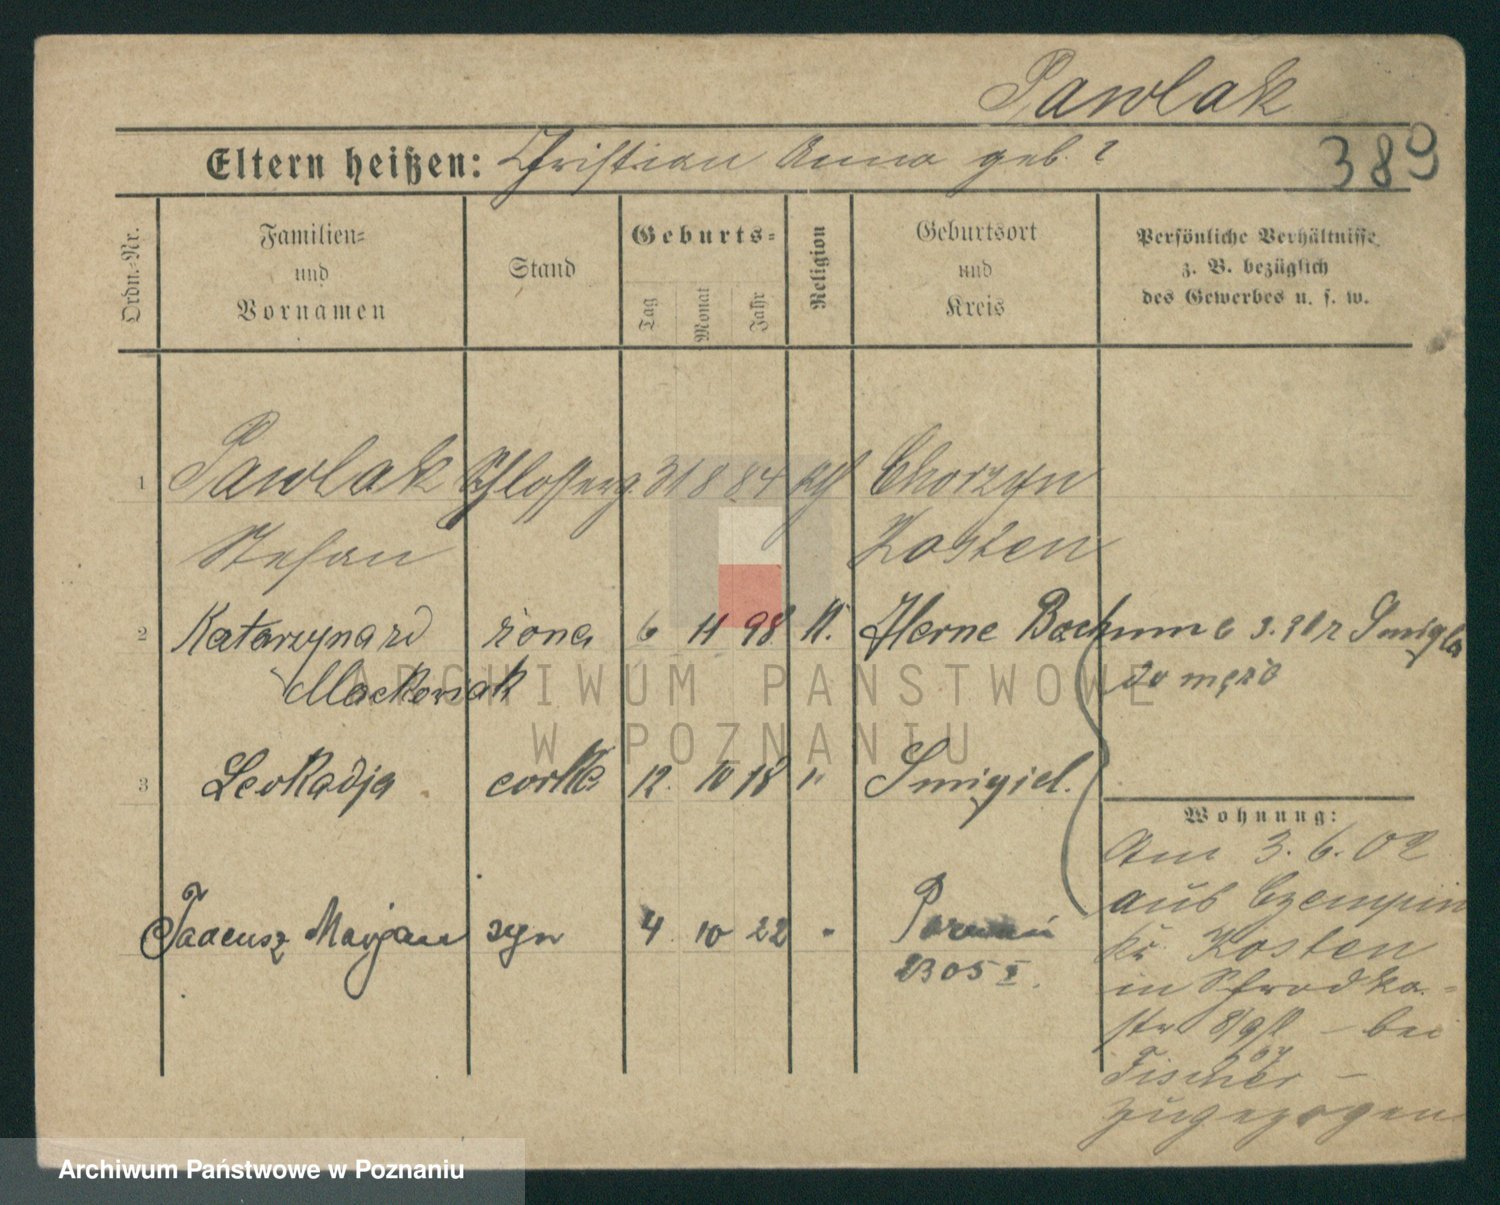 Pawlak
389
Eltern heißen: Christian Anna geb. ?
Ordn.-Nr.
Familien-
und
Vornamen
Stand
Geburts-
Tag
Monat
Jahr
Religion
Geburtsort
und
Kreis
Persönliche Verhältnisse
z. B. bezüglich
des Gewerbes u. s. w.
1 Pawlak 31 8 84 kth Chorzyn
Stefan Kosten
2 Katarzyna żona 6 11 98 K. Herne Bochum
Maćkowiak
do męża
3 Leokadja córka 12. 10 18 " Śmigiel.
Wohnung:
Tadeusz Marjan syn 4 10 22 " Poznań
2305 I.
Am 3.6.02
aus Czempin
Kr Kosten
in Schrodka-
str bei
Fischer
zugezogen
ARCHIWUM PAŃSTWOWE
W POZNANIU
Archiwum Państwowe w Poznaniu